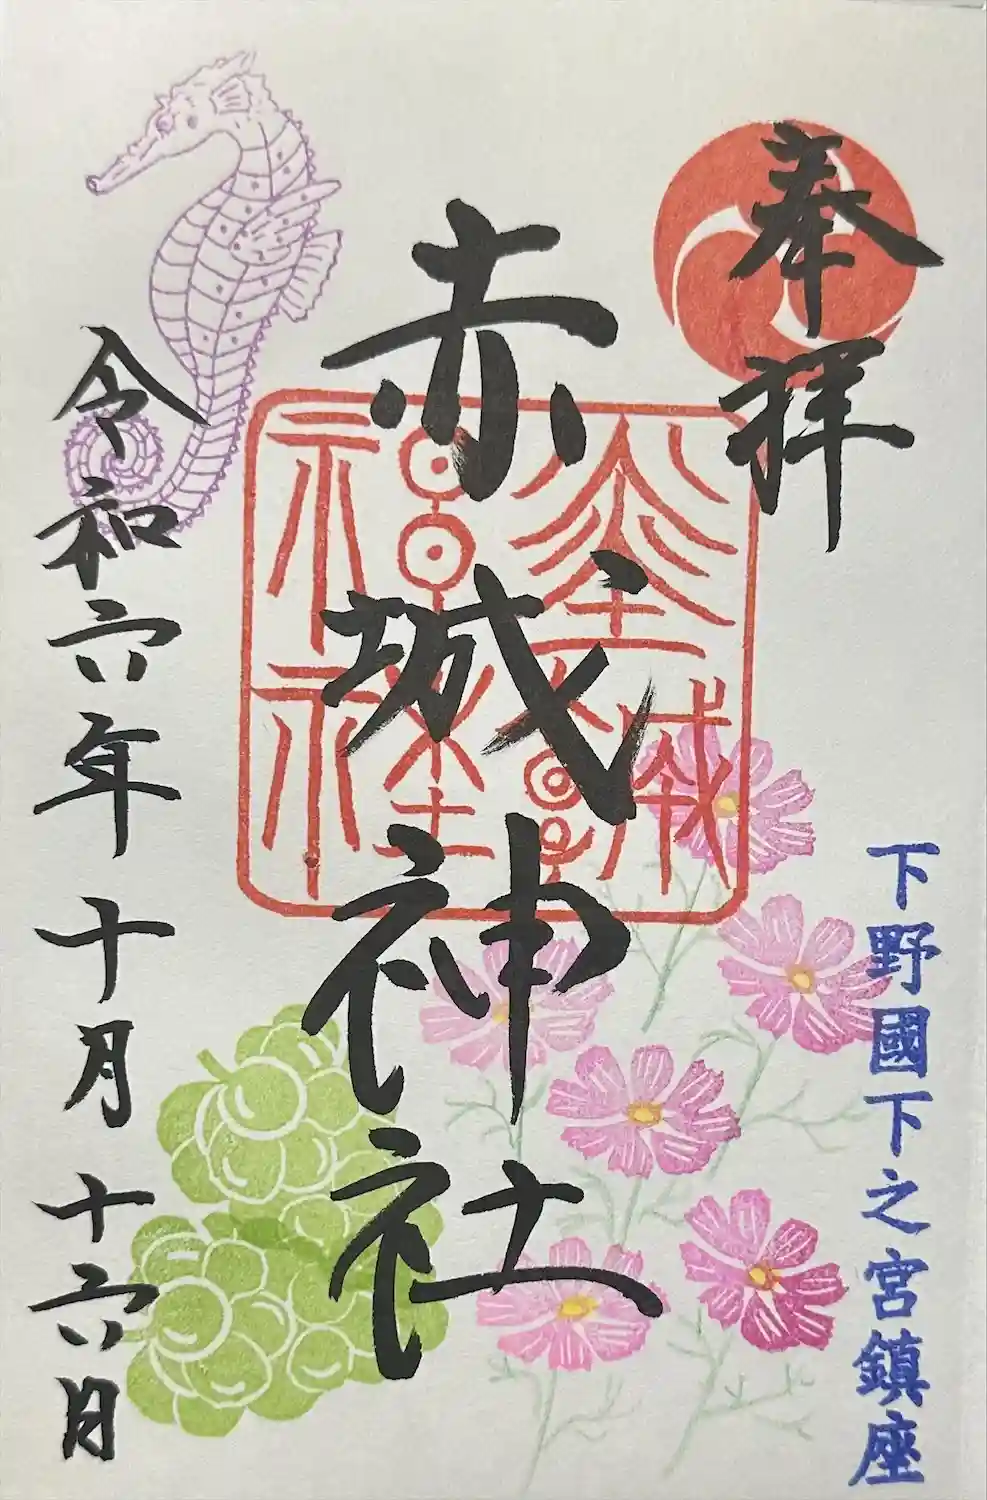 奉拝
下野國下之宮鎮座
赤城神社
令和六年十月十六日